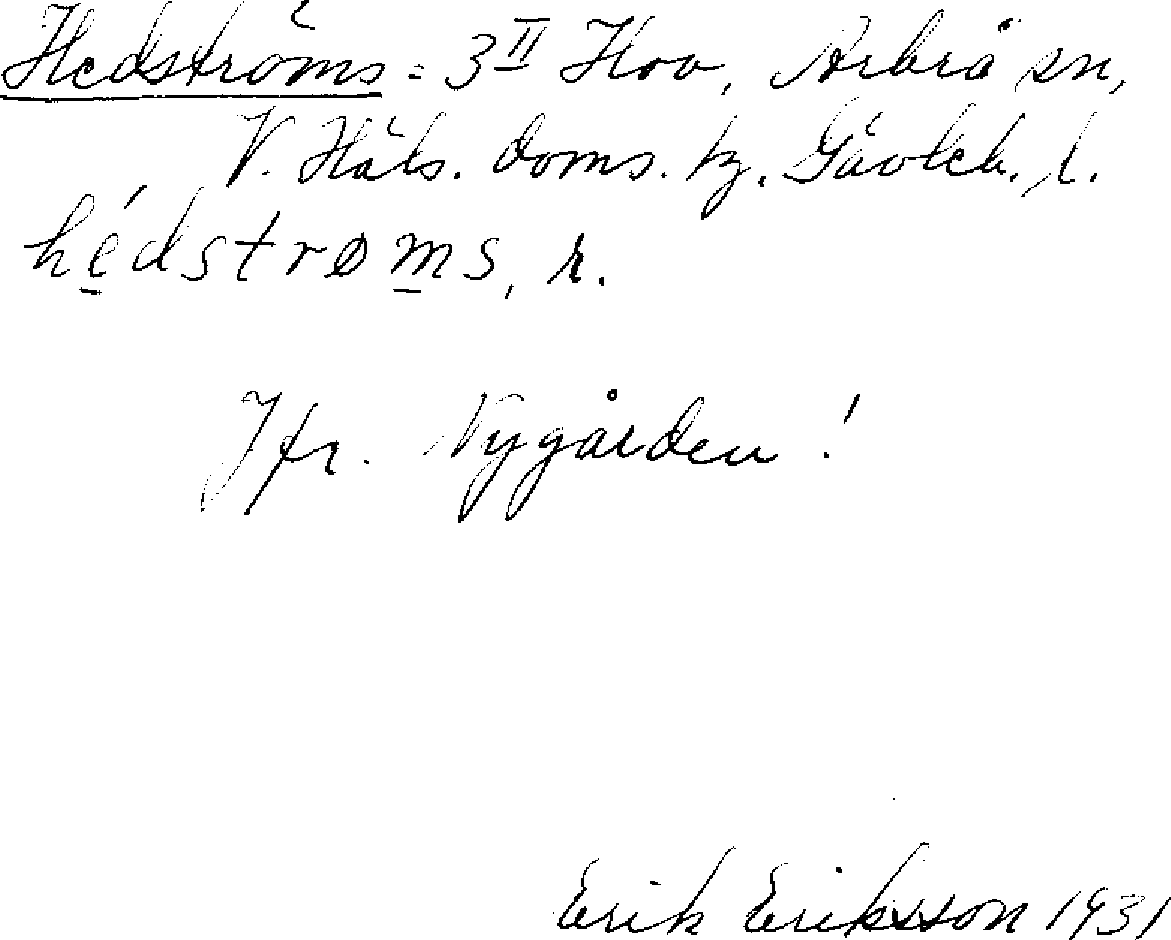 Hedströms = 3II Hov, Arbrå sn,
V. Häls. doms. tg. Gävleb. l.
hédstrøms, r.
Jfr. Nygården!
Erik Eriksson 1931